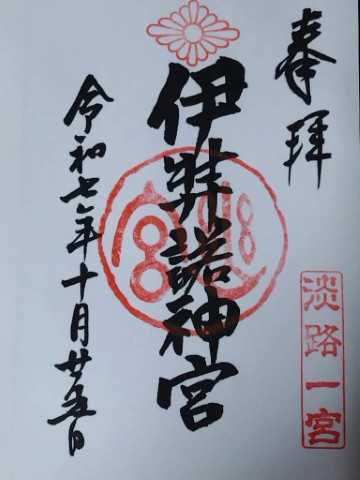 奉拝
淡路一宮
伊弉諾神宮
令和七年十月廿五日